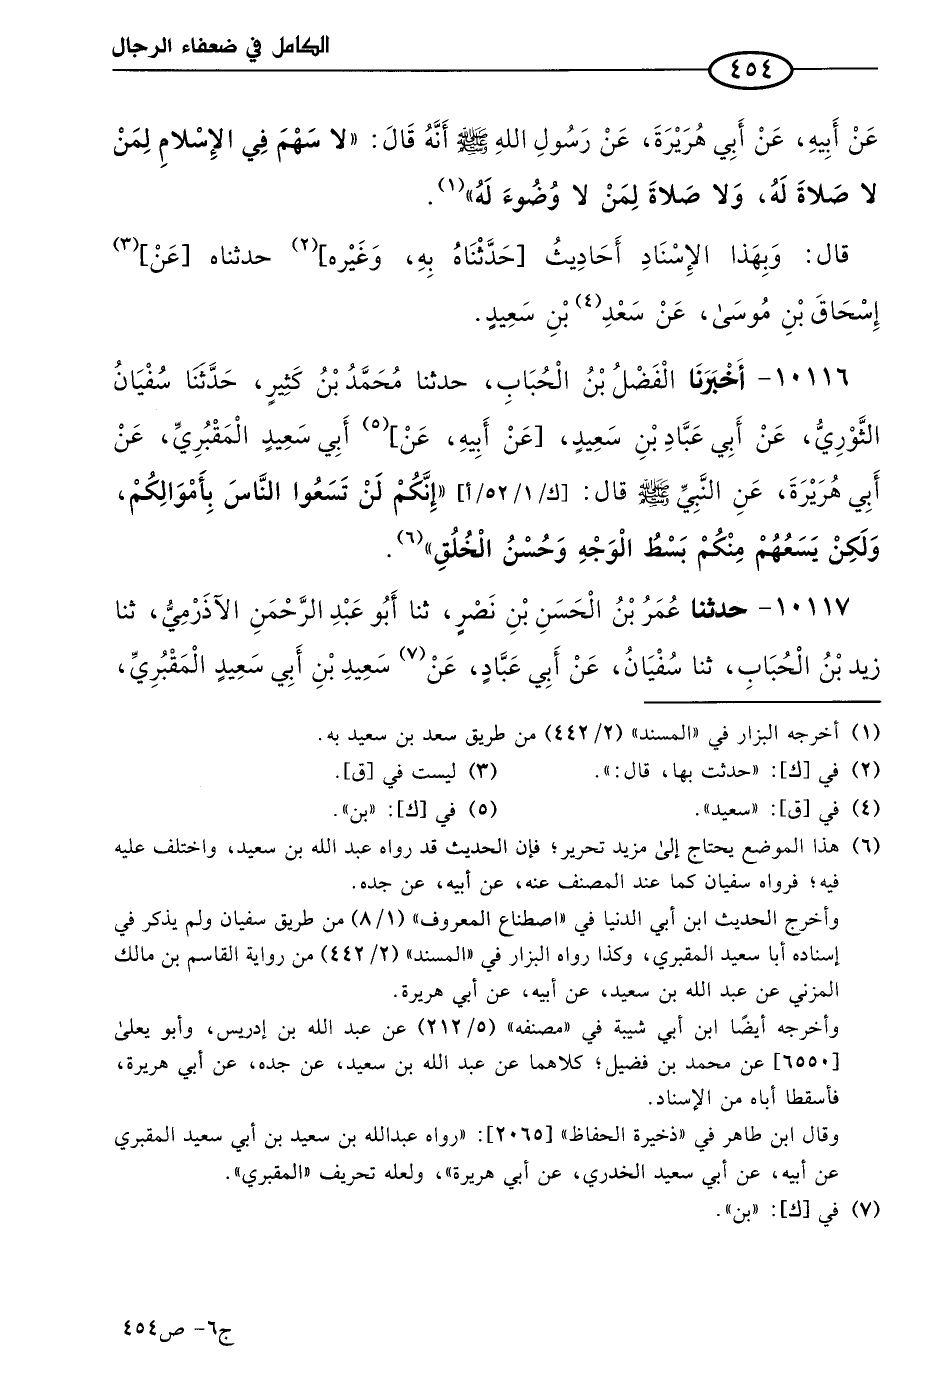 الكامل في ضعفاء الرجال
٤٥٤
عَنْ أَبِيهِ، عَنْ أَبِي هُرَيْرَةَ، عَنْ رَسُولِ اللهِ ﷺ أَنَّهُ قَالَ: «لا سَهْمَ فِي الإِسْلامِ لِمَنْ
لا صَلاةَ لَهُ، وَلا صَلاةَ لِمَنْ لا وُضُوءَ لَهُ»(١).
قال: وَبِهَذا الإِسْنَادِ أَحَادِيثُ [حَدَّثْنَاهُ بِهِ، وَغَيْره](٢) حدثناه [عَنْ](٣)
إِسْحَاقَ بْنِ مُوسَىٰ، عَنْ سَعْدِ(٤) بْنِ سَعِيدٍ.
١٠١١٦- أَخْبَرَنَا الْفَضْلُ بْنُ الْحُبَابِ، حدثنا مُحَمَّدُ بْنُ كَثِيرٍ، حَدَّثَنَا سُفْيَانُ
الثَّوْرِيُّ، عَنْ أَبِي عَبَّادِ بْنِ سَعِيدٍ، [عَنْ أَبِيهِ، عَنْ](٥) أَبِي سَعِيدٍ الْمَقْبُرِيِّ، عَنْ
أَبِي هُرَيْرَةَ، عَنِ النَّبِيِّ ﷺ قال: [ك/٥٢/١/أ] «إِنَّكُمْ لَنْ تَسَعُوا النَّاسَ بِأَمْوَالِكُمْ،
وَلَكِنْ يَسَعُهُمْ مِنْكُمْ بَسْطُ الْوَجْهِ وَحُسْنُ الْخُلُقِ»(٦).
١٠١١٧- حدثنا عُمَرُ بْنُ الْحَسَنِ بْنِ نَصْرٍ، ثنا أَبُو عَبْدِ الرَّحْمَنِ الآذَرْمِيُّ، ثنا
زيد بْنُ الْحُبَابِ، ثنا سُفْيَانُ، عَنْ أَبِي عَبَّادٍ، عَنْ(٧) سَعِيدِ بْنِ أَبِي سَعِيدٍ الْمَقْبُرِيِّ،
(١) أخرجه البزار في «المسند» (٤٤٢/٢) من طريق سعد بن سعيد به.
(٢) في [ك]: «حدثت بها، قال:». (٣) ليست في [ق].
(٤) في [ق]: «سعيد». (٥) في [ك]: «بن».
(٦) هذا الموضع يحتاج إلىٰ مزيد تحرير؛ فإن الحديث قد رواه عبد الله بن سعيد، واختلف عليه
فيه؛ فرواه سفيان كما عند المصنف عنه، عن أبيه، عن جده.
وأخرج الحديث ابن أبي الدنيا في «اصطناع المعروف» (٨/١) من طريق سفيان ولم يذكر في
إسناده أبا سعيد المقبري، وكذا رواه البزار في «المسند» (٤٤٢/٢) من رواية القاسم بن مالك
المزني عن عبد الله بن سعيد، عن أبيه، عن أبي هريرة.
وأخرجه أيضًا ابن أبي شيبة في «مصنفه» (٢١٢/٥) عن عبد الله بن إدريس، وأبو يعلىٰ
[٦٥٥٠] عن محمد بن فضيل؛ كلاهما عن عبد الله بن سعيد، عن جده، عن أبي هريرة،
فأسقطا أباه من الإسناد.
وقال ابن طاهر في «ذخيرة الحفاظ» [٢٠٦٥]: «رواه عبدالله بن سعيد بن أبي سعيد المقبري
عن أبيه، عن أبي سعيد الخدري، عن أبي هريرة»، ولعله تحريف «المقبري».
(٧) في [ك]: «بن».
ج٦- ص٤٥٤